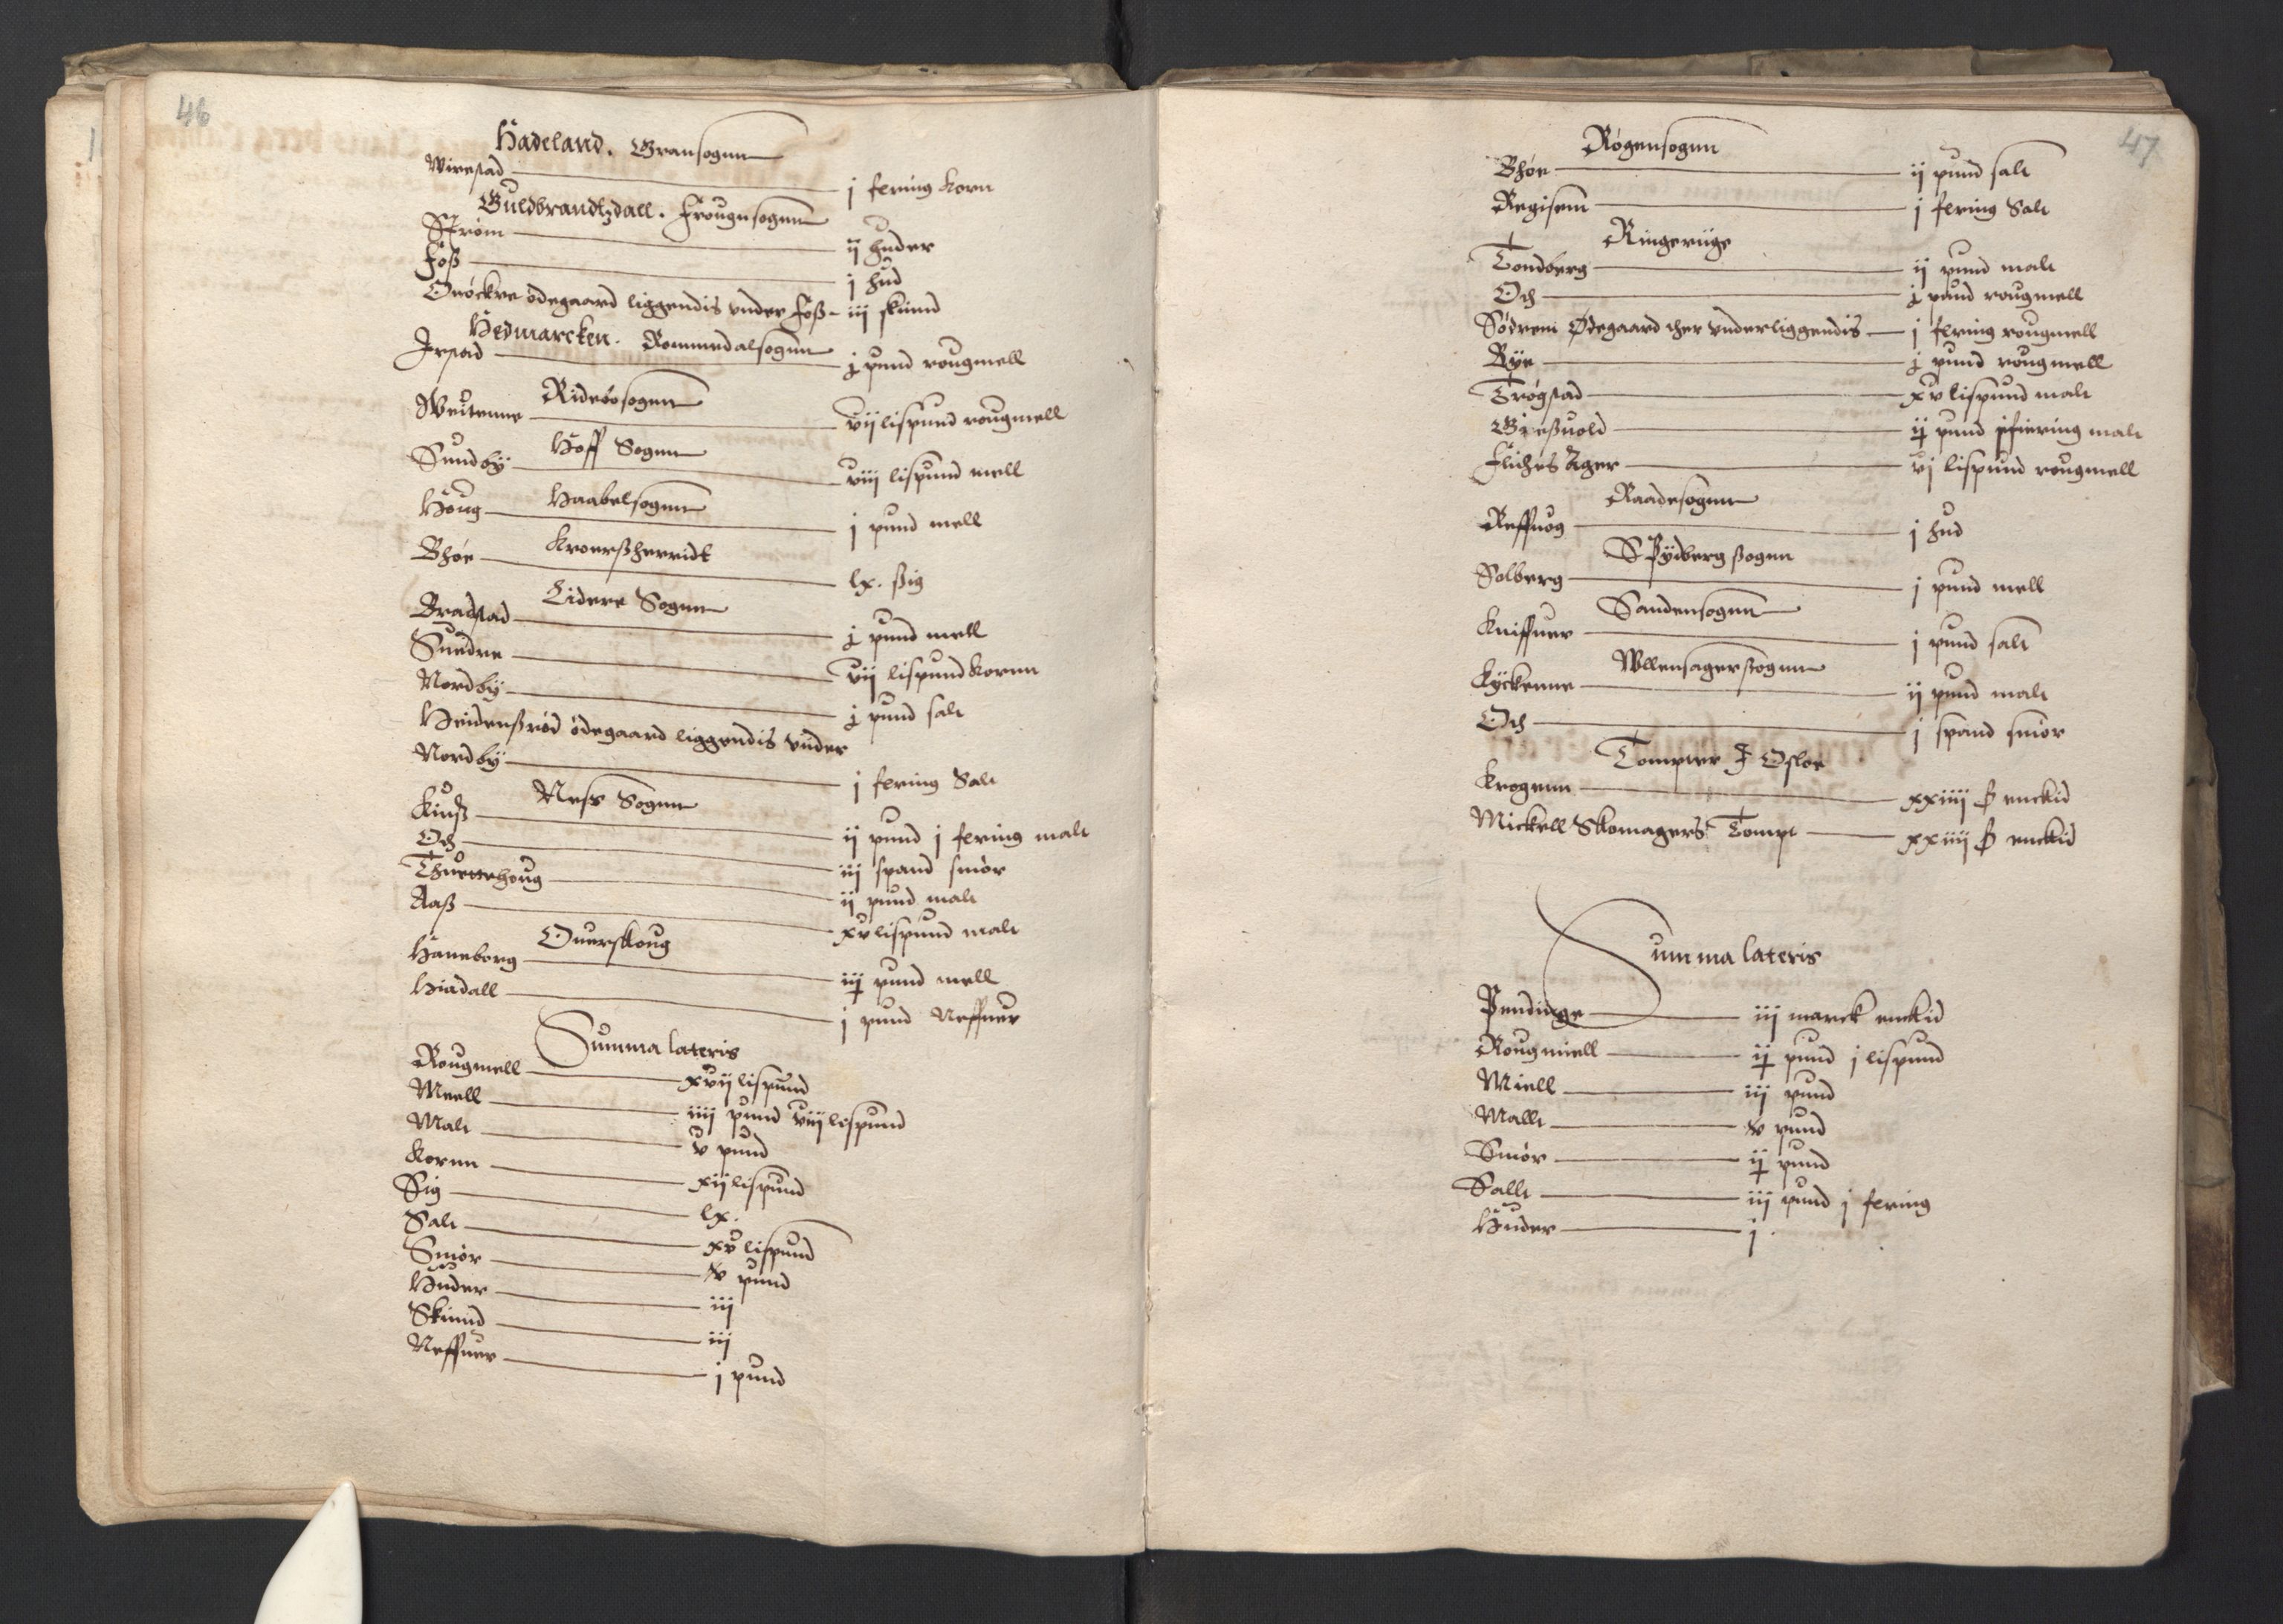 46
Hadeland. Gransognn
Wirestad j fering korn
Guldbrandtzdall. Frougnsognn
Strøm ij huder
Foss j hud
Orøckre ødegaard liggendis vnder Foss iij skinnd
Hedmarcken. Rommedalsognn
Irstad j pund rougmell
Ridersøsognn
Weitenne vij lispund rougmell
Hoff Sognn
Sundby viij lispund mell
Haabelsognn
Houg j pund mell
Kroerssherridt
Bhøe lx. ssig
Eidere Sognn
Bradstad j pund mell
Sundre vij lispund kornn
Nordby j pund salt
Heidenssrød ødegaard liggendis vnder
Nordby j fering Salt
Ness Sognn
Kinss ij pund j fering malt
Och iij spand smør
Thuettehoug ij pund malt
Aass xv lispund malt
Ouerskoug
Haneborg iij pund mell
Hiadall j pund Neffuer
Summa lateris
Rougmell xvij lispund
Meell iiij pund viij lispund
Malt v pund
Kornn xij lispund
Sig lx.
Salt xv lispund
Smør v pund
Huder iij
Skinnd iij
Neffuer j pund
47
Røgensognn
Bhøe ij pund salt
Registem j fering Salt
Ringeriige
Tandberg ij pund malt
Och j pund rougmell
Sødreni Ødegaard ther vnderliggendis j fering rougmell
Rye j pund rougmell
Trøgstad xv lispund malt
Giessuold ij pund j fiering malt
Flichés Ager vj lispund rougmell
Raadesognn
Reffuog j hud
Spydbergssognn
Solberg j pund mell
Sandensognn
Kniffuer j pund salt
Wllensagerssognn
Kyckenne ij pund malt
Och j spand smør
Tompter J Osloe
Krogenn xxiiij ß enckid
Mickell Skomagers Tompt xxiiij ß enckid
Summa lateris
Pendinge iij marck enckid
Rougmiell ij pund j lispund
Miell iij pund
Mallt v pund
Smør ij pund
Sallt iij pund j fering
Huder j.